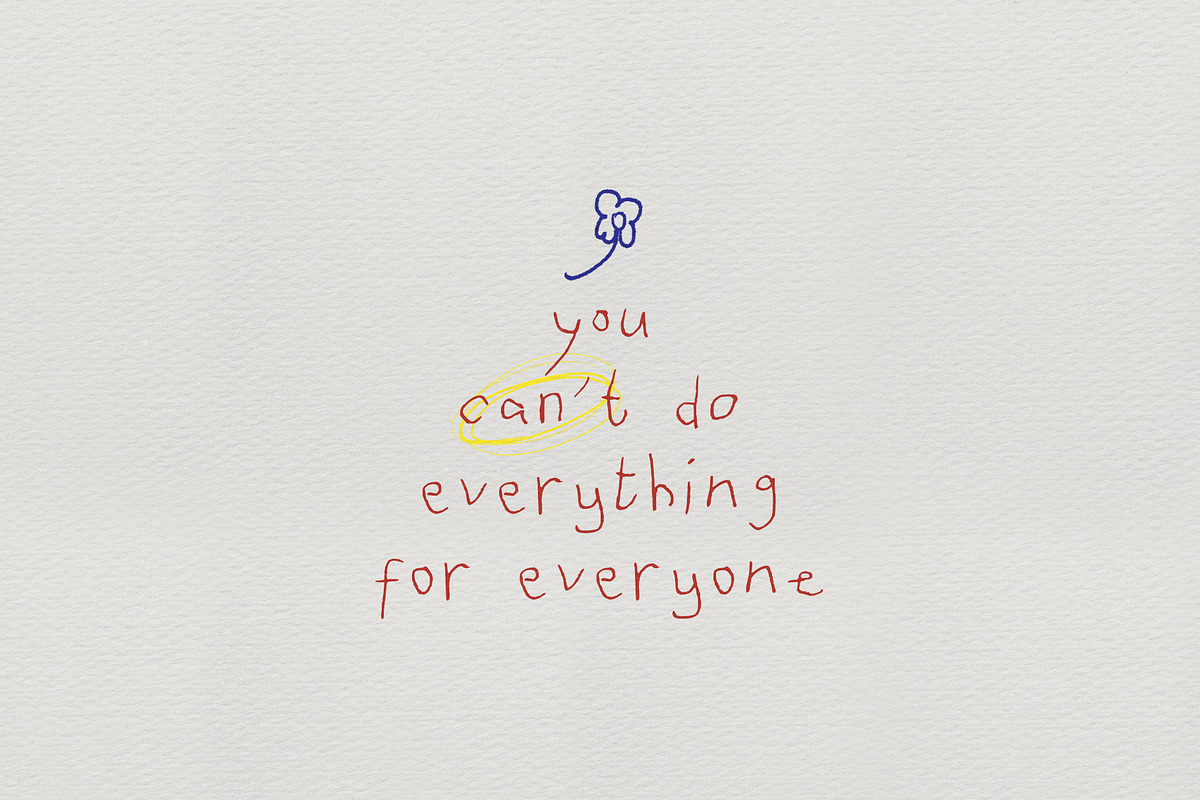 you
can't do
everything
for everyone